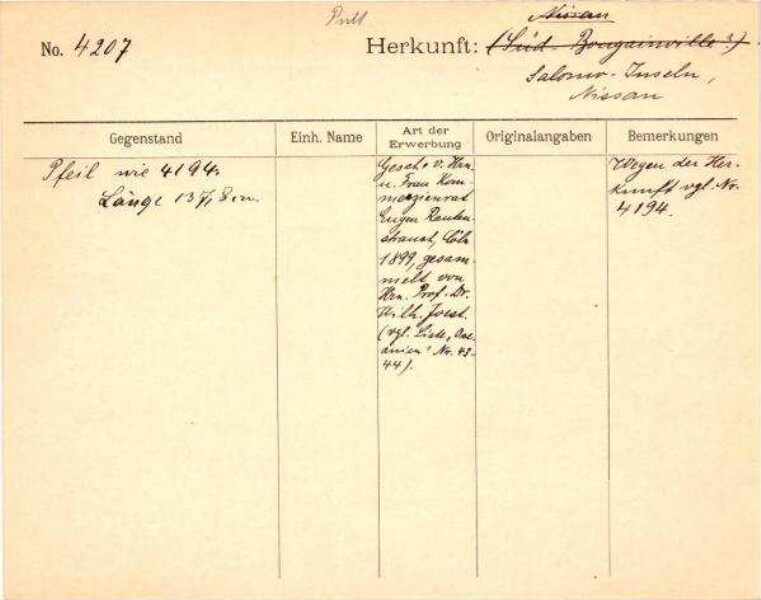 Pult
No. 4207
Herkunft: Nissan
(Süd-Bougainville?)
Salomo-Inseln,
Nissan
Gegenstand
Einh. Name
Art der Erwerbung
Originalangaben
Bemerkungen
Pfeil wie 4194.
Länge 137,8 cm.
Gesch. v. Hrn.
u. Frau Kom-
merzienrat
Eugen Rauten-
strauch, Cöln
1899, gesam-
melt von
Hrn. Prof. Dr.
Wilh. Joest.
(vgl. Liste „Oze-
anien" Nr. 43-
44).
Wegen der Her-
kunft vgl. Nr.
4194.